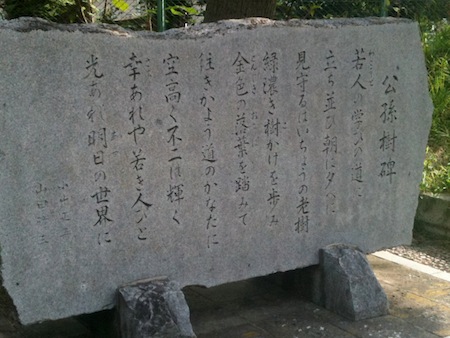 公孫樹碑
若人の学びの道に
立ち並び朝に夕べに
見守るはいちょうの老樹
緑濃き樹かげを歩み
金色の落葉を踏みて
往きかよう道のかなたに
空高く不二は輝く
幸あれや若き人びと
光あれ明日の世界に
小出正
山田 三